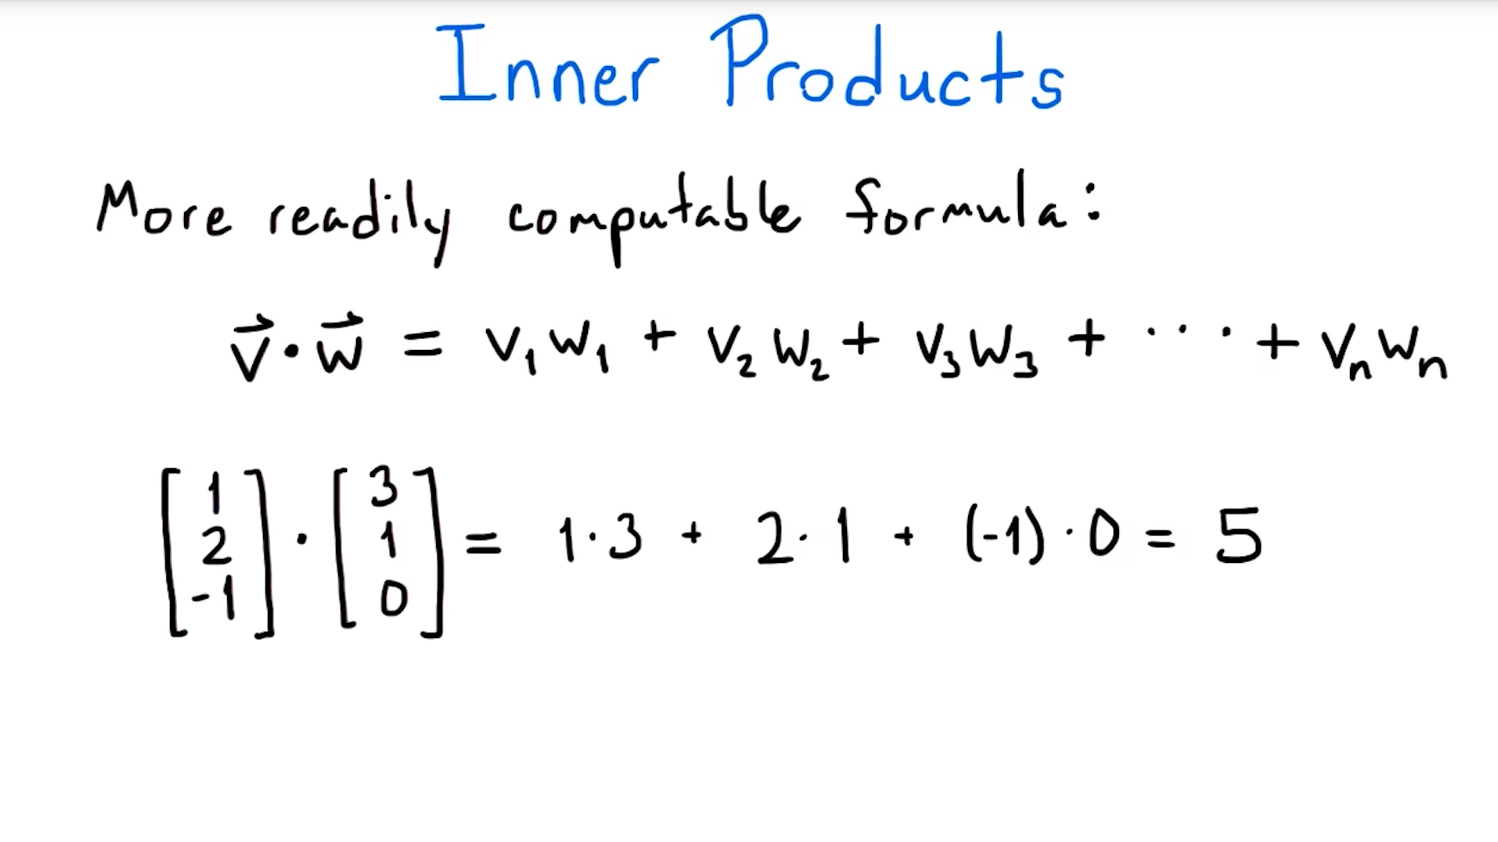 Inner Products
More readily computable formula:
v⃗·w⃗ = v₁w₁ + v₂w₂ + v₃w₃ + ··· + vₙwₙ
[1 2 -1]·[3 1 0] = 1·3 + 2·1 + (-1)·0 = 5